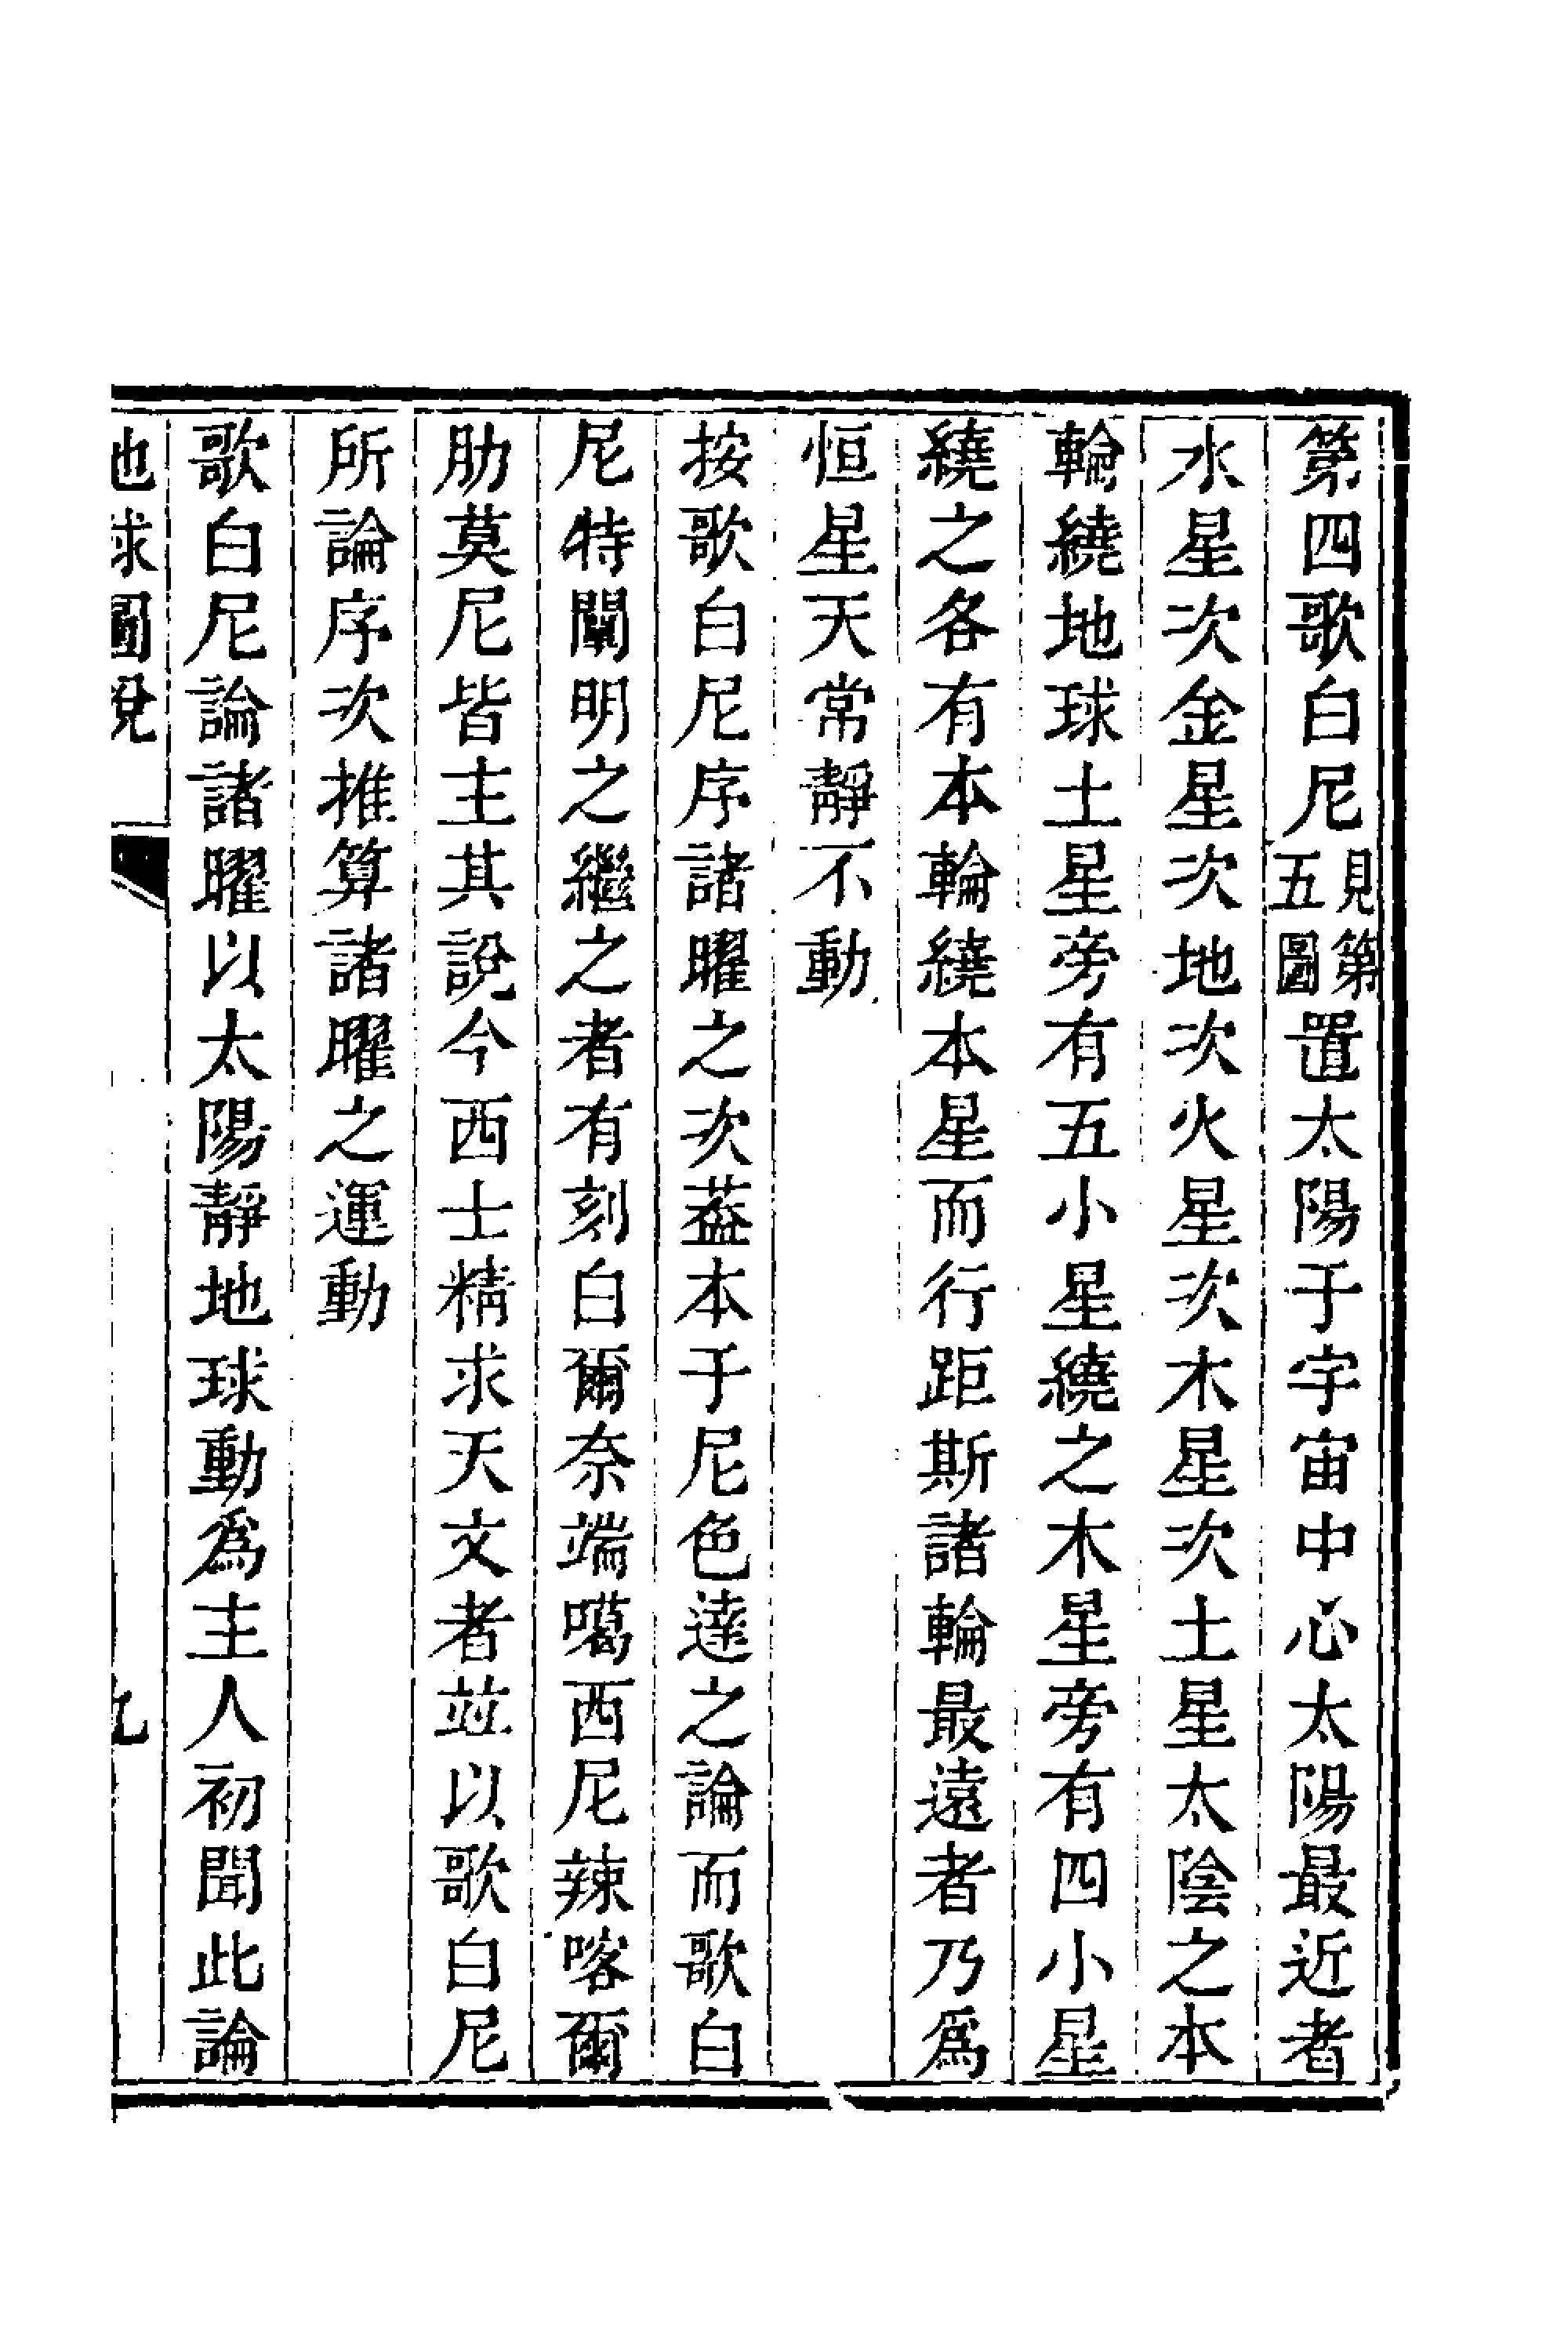 第四歌白尼見第五圖置太陽于宇宙中心太陽最近者
水星次金星次地次火星次木星次土星太陰之本
輪繞地球土星旁有五小星繞之木星旁有四小星
繞之各有本輪繞本星而行距斯諸輪最遠者乃爲
恒星天常靜不動
按歌白尼序諸曜之次葢本于尼色達之論而歌白
尼特闡明之繼之者有刻白爾奈端噶西尼辣喀爾
肋莫尼皆主其說今西士精求天文者竝以歌白尼
所論序次推算諸曜之運動
歌白尼論諸曜以太陽靜地球動爲主人初聞此論
地球圖說
九